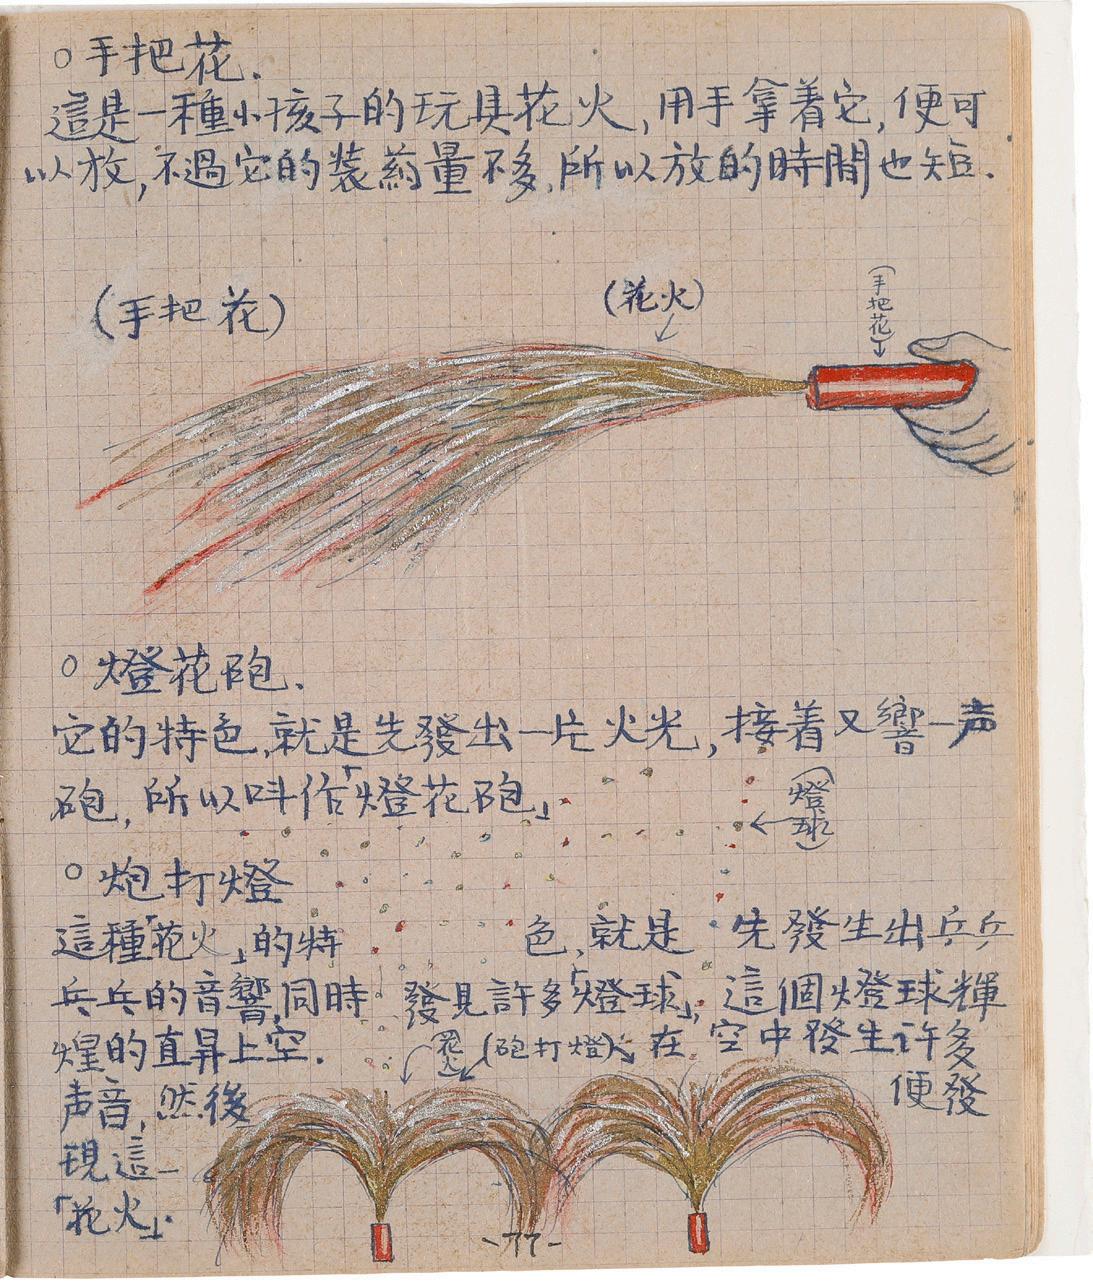 ○手把花.
這是一種小孩子的玩具花火,用手拿着它,便可
以放,不過它的装葯量不多,所以放的時間也短.
(手把花)
(花火)
(手把花)
○燈花砲.
它的特色,就是先發出一片火光,接着又響一声
砲,所以叫作「燈花砲」
(燈球)
○炮打燈
這種「花火」的特色,就是先發生出乒乒
乓乓的音響,同時發見許多「燈球」,這個燈球輝
煌的直昇上空.
花火
(砲打燈)
在空中發生許多
声音,然後便發
現這一
「花火」.
-77-